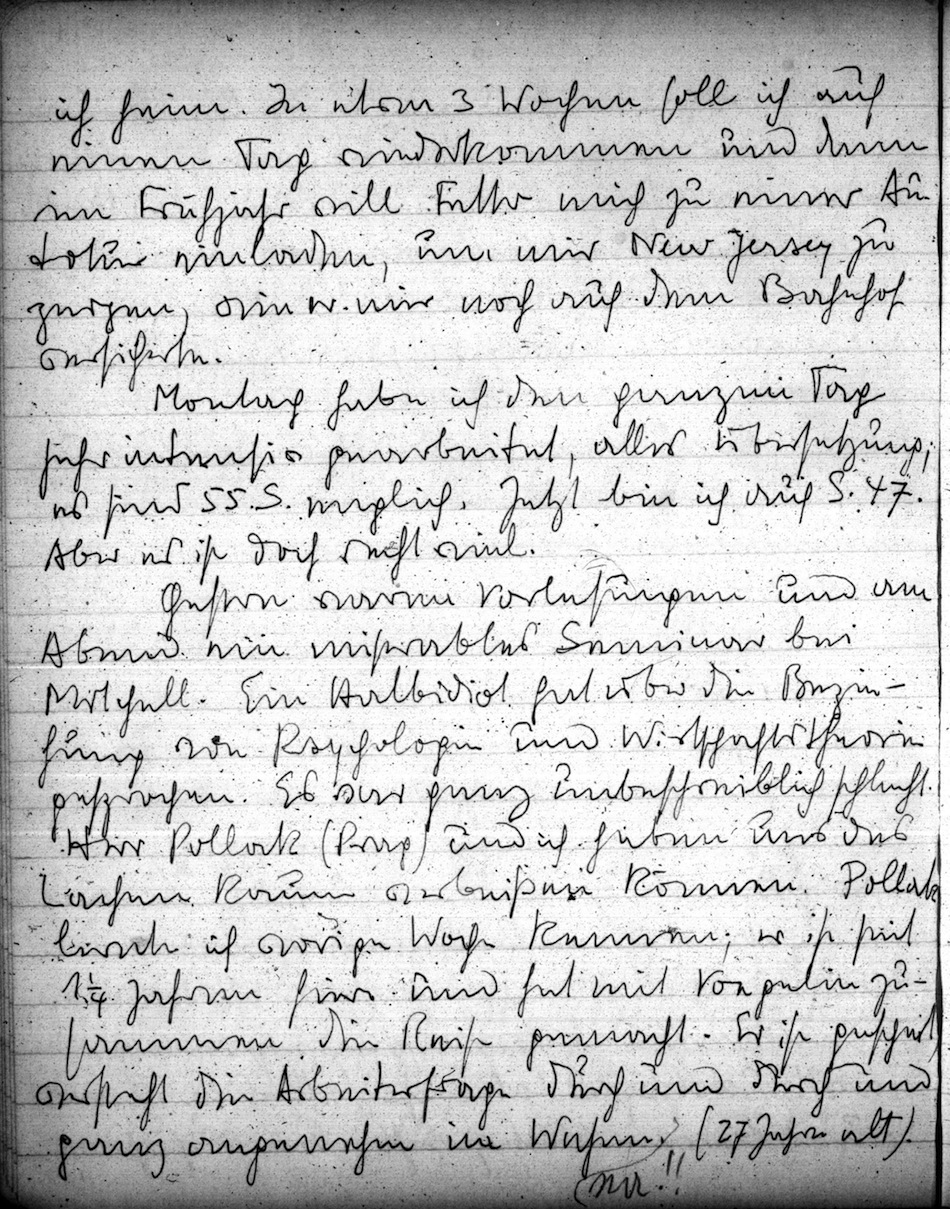 ich heim. In etwa 3 Wochen soll ich auf
einen Tag wiederkommen und dann
im Frühjahr will Fetter mich zu einer Au-
totour einladen, um mir New Jersey zu
zeigen, wie er mir noch auf dem Bahnhof
versicherte.
Montag habe ich den ganzen Tag
sehr intensiv gearbeitet, alles Übersetzung;
es sind 55 S. englisch. Jetzt bin ich auf S. 47.
Aber es ist doch recht viel.
Gestern waren Vorlesungen und am
Abend ein miserables Seminar bei
Mitchell. Ein Halbidiot hat über die Bezie-
hung von Psychologie und Wirtschaftstheorie
gesprochen. Es war ganz unbeschreiblich schlecht.
Herr Pollak (Prag) und ich haben uns das
Lachen kaum verbeißen können. Pollak
lernte ich vorige Woche kennen; er ist seit
1 1/4 Jahren hier und hat mit Voegelin zu-
sammen die Reise gemacht. Er ist gescheit,
versteht die Arbeiterfrage durch und durch und
ganz angenehm im Wesen. (27 Jahre alt).